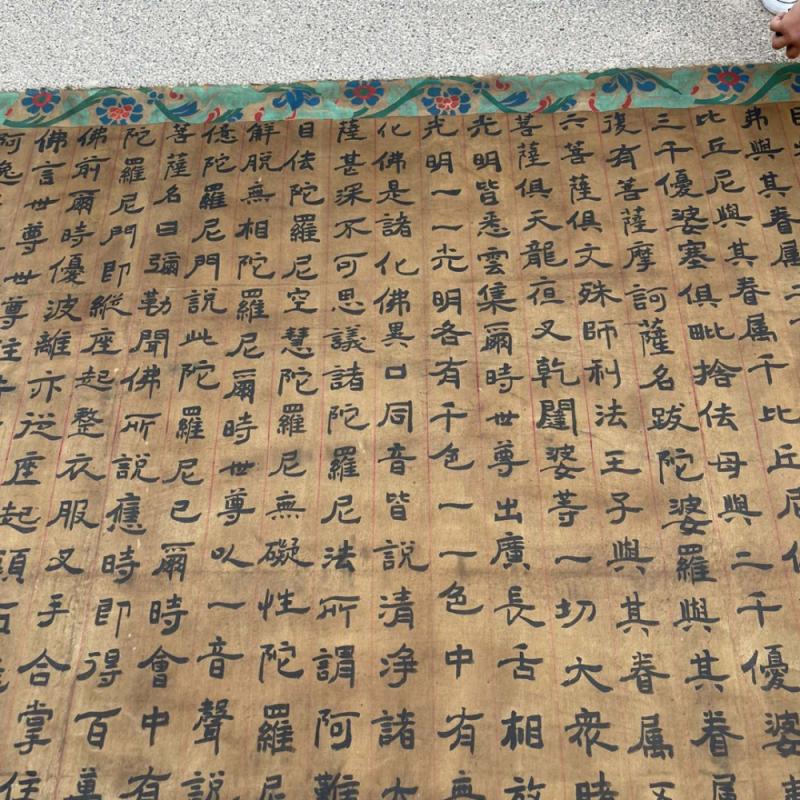 弗與其眷属二
比丘尼與其眷属千比丘尼
三千優婆塞俱毗捨佉母與二千優婆
復有菩薩摩訶薩名跋陀婆羅與其眷
六菩薩俱文殊師利法王子與其眷属
菩薩俱天龍夜叉乾闥婆等一切大衆睹
光明皆悉雲集爾時世尊出廣長舌相放
光明一一光明各有千色一一色中有無
化佛是諸化佛異口同音皆說清淨諸大
薩甚深不可思議諸陀羅尼法所謂阿難
目佉陀羅尼空慧陀羅尼無礙性陀羅尼
解脫無相陀羅尼爾時世尊以一音聲說
億陀羅尼門說此陀羅尼已爾時會中有
菩薩名曰彌勒聞佛所說應時即得百萬
陀羅尼門即縱座起整衣服叉手合掌住
佛前爾時優波離亦從座起頭
佛言世尊世尊往
阿逸